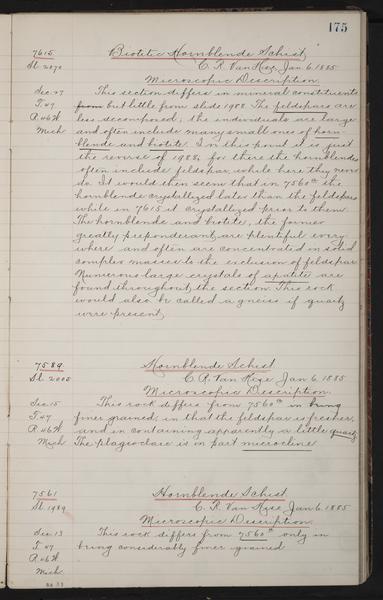 175
7615 Biotitic Hornblende Schist
Sl. 2070 C. R. Van Hise, Jan. 6, 1885
Microscopic Description.
Sec. 27 This section differs in mineral constituents
T. 47 from but little from slide 1988. The feldspars are
R. 46 W less decomposed; the individuals are large
Mich and often include many small ones of horn-
blende and biotite. In this point it is just
the reverse of 1988, for there the hornblendes
often include feldspar while here they never
do. It would then seem that in 7560 the
hornblende crystallized later than the feldspars
while in 7615 it crystallized prior to them.
The hornblende and biotite, the former
greatly preponderant, are plentiful every
where and often are concentrated in solid
complex masses to the exclusion of feldspar.
Numerous large crystals of apatite are
found throughout the section. This rock
would also be called a gneiss if quartz
were present.
7589 Hornblende Schist
Sl. 2005 C. R. Van Hise Jan. 6, 1885
Microscopic Description.
Sec. 15 This rock differs from 7560 in being
T. 47 finer grained, in that the feldspar is fresher,
R. 46 W and in containing apparently a little quartz.
Mich The plagioclase is in part microcline
7561 Hornblende Schist
Sl. 1989 C. R. Van Hise, Jan. 6, 1885
Microscopic Description.
Sec. 13 This rock differs from 7560 only in
T. 47 being considerably finer grained
R. 46 W
Mich.